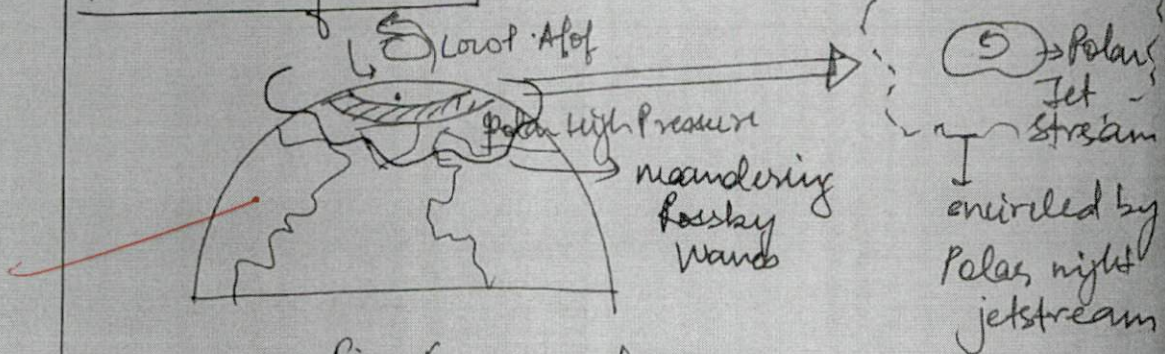 Polar High Pressure
meandering
Rossby
Waves
Polar
Jet
stream
encircled by
Polar night
jetstream